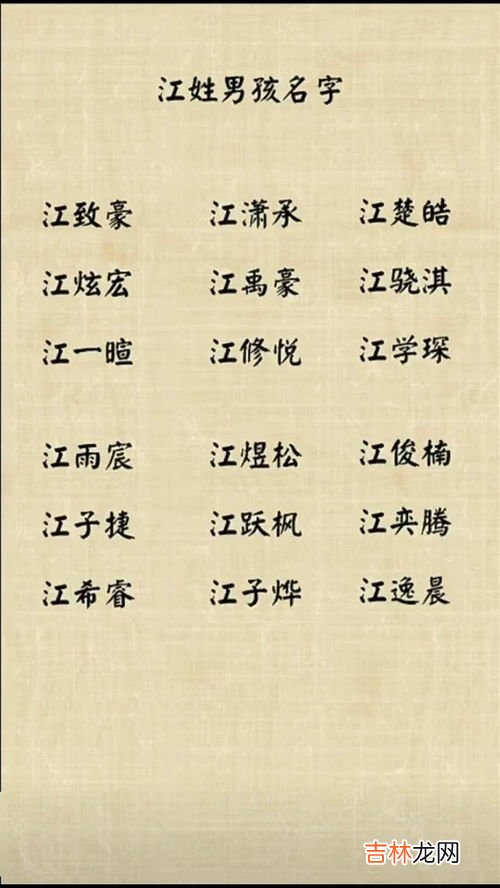 江姓男孩名字
江致豪 江潇承 江楚皓
江炫宏 江禹豪 江骁淇
江一暄 江修悦 江学琛
江雨宸 江煜松 江俊楠
江子捷 江跃枫 江奕腾
江希睿 江子烨 江逸晨
吉林龙网